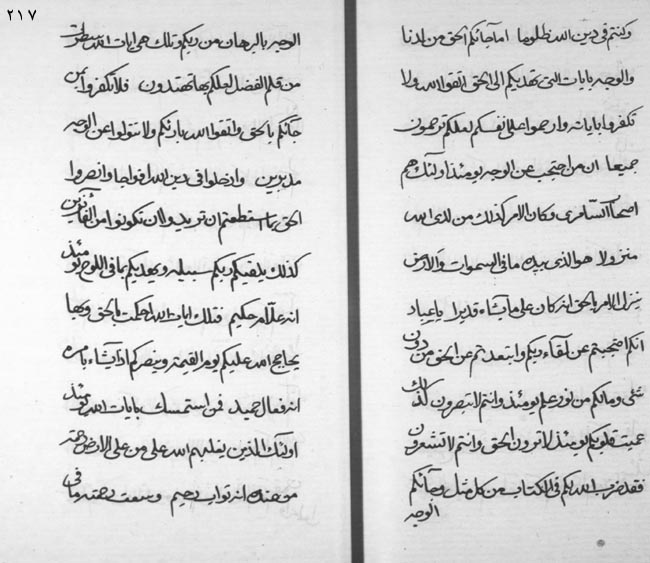 ٢١٧
وكنتم في دين الله ظلوما اما جائكم الحق من لدنا
والوجه بايات التي تهديكم الى الحق اتقوا الله ولا
تكفروا باياته وارحموا على انفسكم لعلكم ترحمون
جميعا ان من احتجب عن الوجه يومئذ اولئك هم
اصحاب السامرى وكان الامر كذلك من لدى الله
منزولا هو الذى بيده ما في السموات والارض
ينزل الامر بالحق انه كان على ما يشاء قديرا يا عباد
انكم احتجبتم عن لقاء ربكم وابتعدتم عن الحق من دون
شئ ومالكم من نور عليم يومئذ وانتم لا تبصرون كذلك
عميت قلوبكم يومئذ لا ترون الحق وانتم لا تشعرون
فقد ضرب الله لكم في الكتاب من كل مثل وجائكم
الوجه
الوجه بالبرهان من ربكم وتلك هى ايات الله
من قلم الفضل لعلكم بها تهتدون فلا تكفروا بمن
جائكم بالحق واتقوا الله بارئكم ولا تتولوا عن الوجه
مدبرين وادخلوا في دين الله افواجا وانصروا
الحق بما استطعتم ان تريدوا ان تكونوا من الفائزين
كذلك يلقيكم ربكم سبيله ويهديكم بما في اللوح يومئذ
انه علام حكيم فتلك ايات الله احكمت بالحق وبها
يحاجج الله عليكم يوم القيمة وينصركم اذا يشاء بامره
انه فعال حميد فمن استمسك بايات الله يومئذ
اولئك الذين يغلبهم الله على من على الارض
من عنده انه تواب رحيم وسعت رحمته ما في